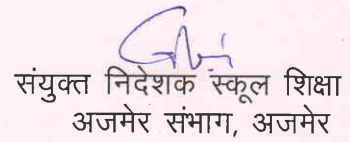 संयुक्त निदेशक स्कूल शिक्षा
अजमेर संभाग, अजमेर